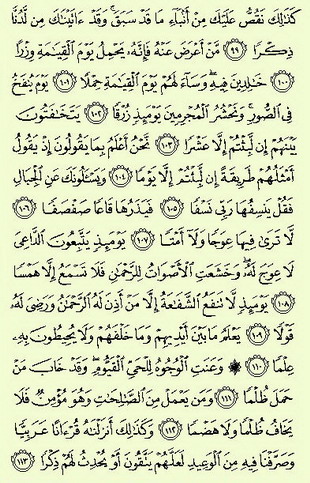 كَذَٰلِكَ نَقُصُّ عَلَيْكَ مِنْ أَنۢبَآءِ مَا قَدْ سَبَقَ ۚ وَقَدْ ءَاتَيْنَـٰكَ مِن لَّدُنَّا
ذِكْرًا ٩٩ مَّنْ أَعْرَضَ عَنْهُ فَإِنَّهُۥ يَحْمِلُ يَوْمَ ٱلْقِيَـٰمَةِ وِزْرًا
١٠٠ خَـٰلِدِينَ فِيهِ ۖ وَسَآءَ لَهُمْ يَوْمَ ٱلْقِيَـٰمَةِ حِمْلًا ١٠١ يَوْمَ يُنفَخُ
فِى ٱلصُّورِ ۚ وَنَحْشُرُ ٱلْمُجْرِمِينَ يَوْمَئِذٍ زُرْقًا ١٠٢ يَتَخَـٰفَتُونَ
بَيْنَهُمْ إِن لَّبِثْتُمْ إِلَّا عَشْرًا ١٠٣ نَّحْنُ أَعْلَمُ بِمَا يَقُولُونَ إِذْ يَقُولُ
أَمْثَلُهُمْ طَرِيقَةً إِن لَّبِثْتُمْ إِلَّا يَوْمًا ١٠٤ وَيَسْـَٔلُونَكَ عَنِ ٱلْجِبَالِ
فَقُلْ يَنسِفُهَا رَبِّى نَسْفًا ١٠٥ فَيَذَرُهَا قَاعًا صَفْصَفًا ١٠٦
لَّا تَرَىٰ فِيهَا عِوَجًا وَلَآ أَمْتًا ١٠٧ يَوْمَئِذٍ يَتَّبِعُونَ ٱلدَّاعِىَ
لَا عِوَجَ لَهُۥ ۖ وَخَشَعَتِ ٱلْأَصْوَاتُ لِلرَّحْمَـٰنِ فَلَا تَسْمَعُ إِلَّا هَمْسًا
١٠٨ يَوْمَئِذٍ لَّا تَنفَعُ ٱلشَّفَـٰعَةُ إِلَّا مَنْ أَذِنَ لَهُ ٱلرَّحْمَـٰنُ وَرَضِىَ لَهُۥ
قَوْلًا ١٠٩ يَعْلَمُ مَا بَيْنَ أَيْدِيهِمْ وَمَا خَلْفَهُمْ وَلَا يُحِيطُونَ بِهِۦ
عِلْمًا ١١٠ ۞ وَعَنَتِ ٱلْوُجُوهُ لِلْحَىِّ ٱلْقَيُّومِ ۖ وَقَدْ خَابَ مَنْ
حَمَلَ ظُلْمًا ١١١ وَمَن يَعْمَلْ مِنَ ٱلصَّـٰلِحَـٰتِ وَهُوَ مُؤْمِنٌ فَلَا
يَخَافُ ظُلْمًا وَلَا هَضْمًا ١١٢ وَكَذَٰلِكَ أَنزَلْنَـٰهُ قُرْءَانًا عَرَبِيًّا
وَصَرَّفْنَا فِيهِ مِنَ ٱلْوَعِيدِ لَعَلَّهُمْ يَتَّقُونَ أَوْ يُحْدِثُ لَهُمْ ذِكْرًا ١١٣